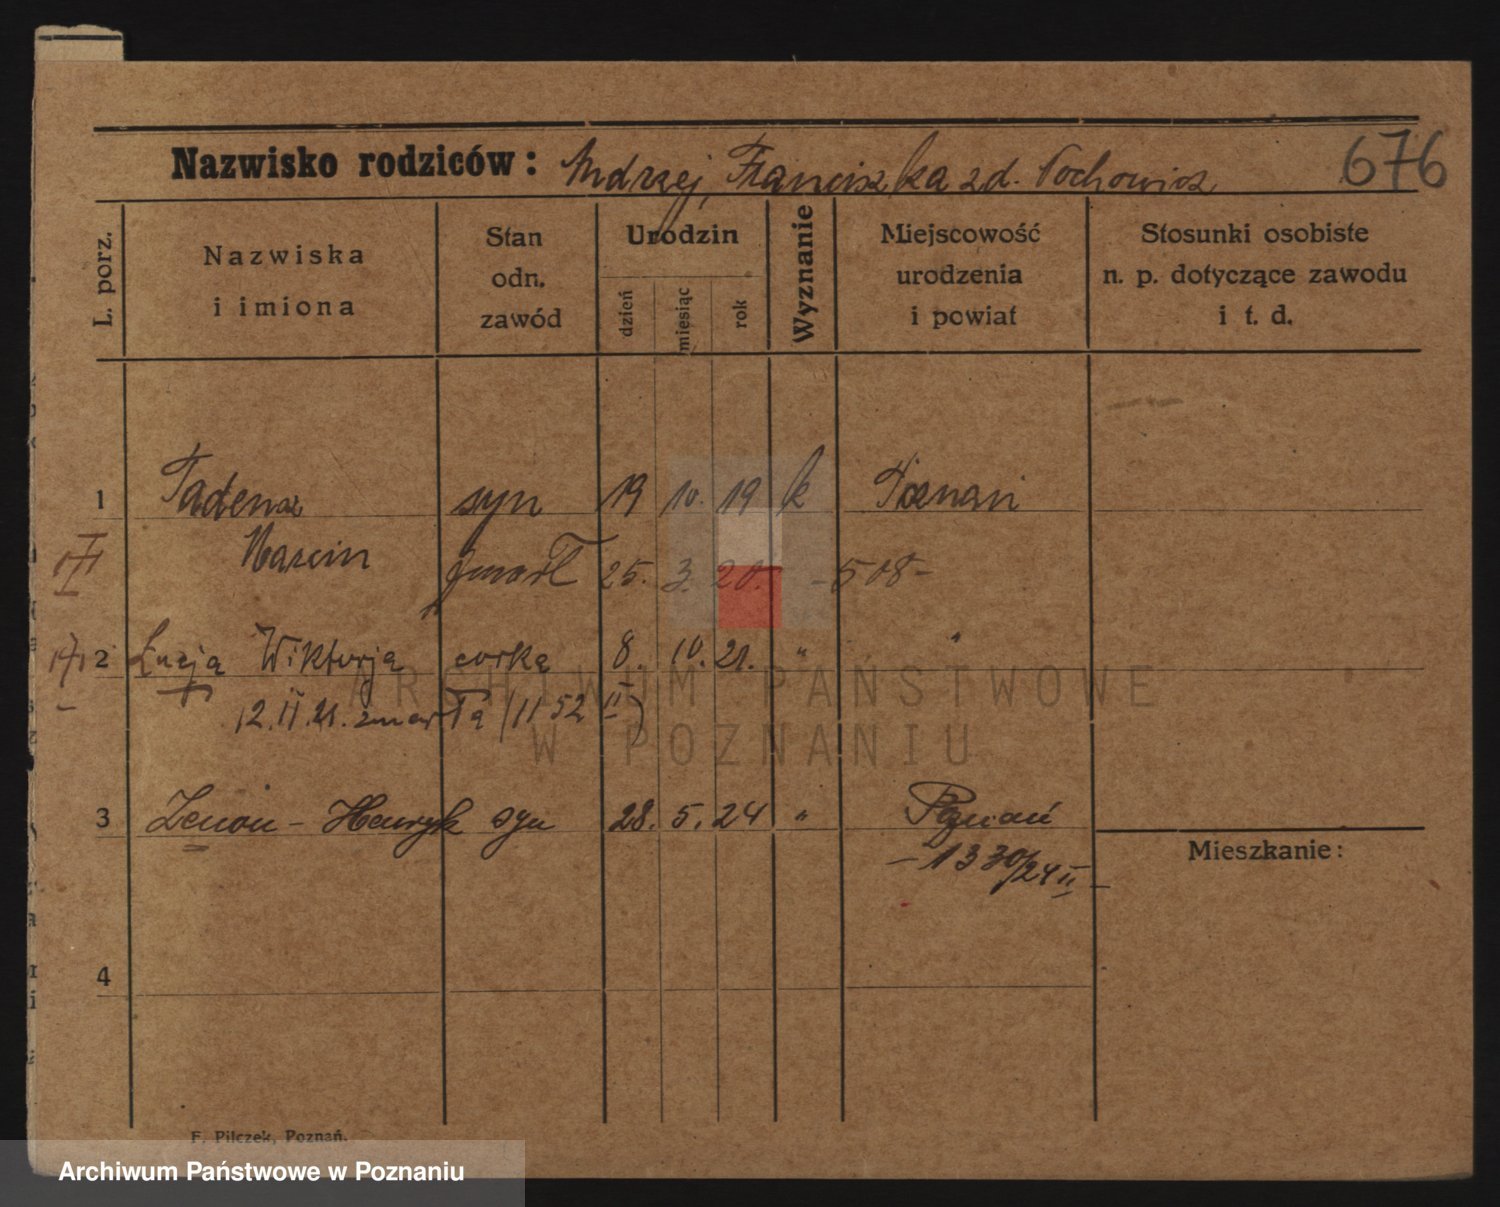 676
Nazwisko rodziców: Andrzej, Franciszka zd. Pochowicz
L. porz.
Nazwiska i imiona
Stan odn. zawód
Urodzin
dzień
miesiąc
rok
Wyznanie
Miejscowość urodzenia i powiat
Stosunki osobiste n. p. dotyczące zawodu i t. d.
1 Tadeusz syn 19 10. 19 k Poznań
Marcin zmarł 25. 3. 20. -508-
2 Łucja Wiktorja corka 8. 10. 21. " "
12. II. 21. zmarła (1152 II)
3 Zenon - Henryk syn 28. 5. 24 " Poznań
- 1330/24 II -
Mieszkanie:
4
F. Pilczek, Poznań.
ARCHIWUM PAŃSTWOWE
W POZNANIU
Archiwum Państwowe w Poznaniu